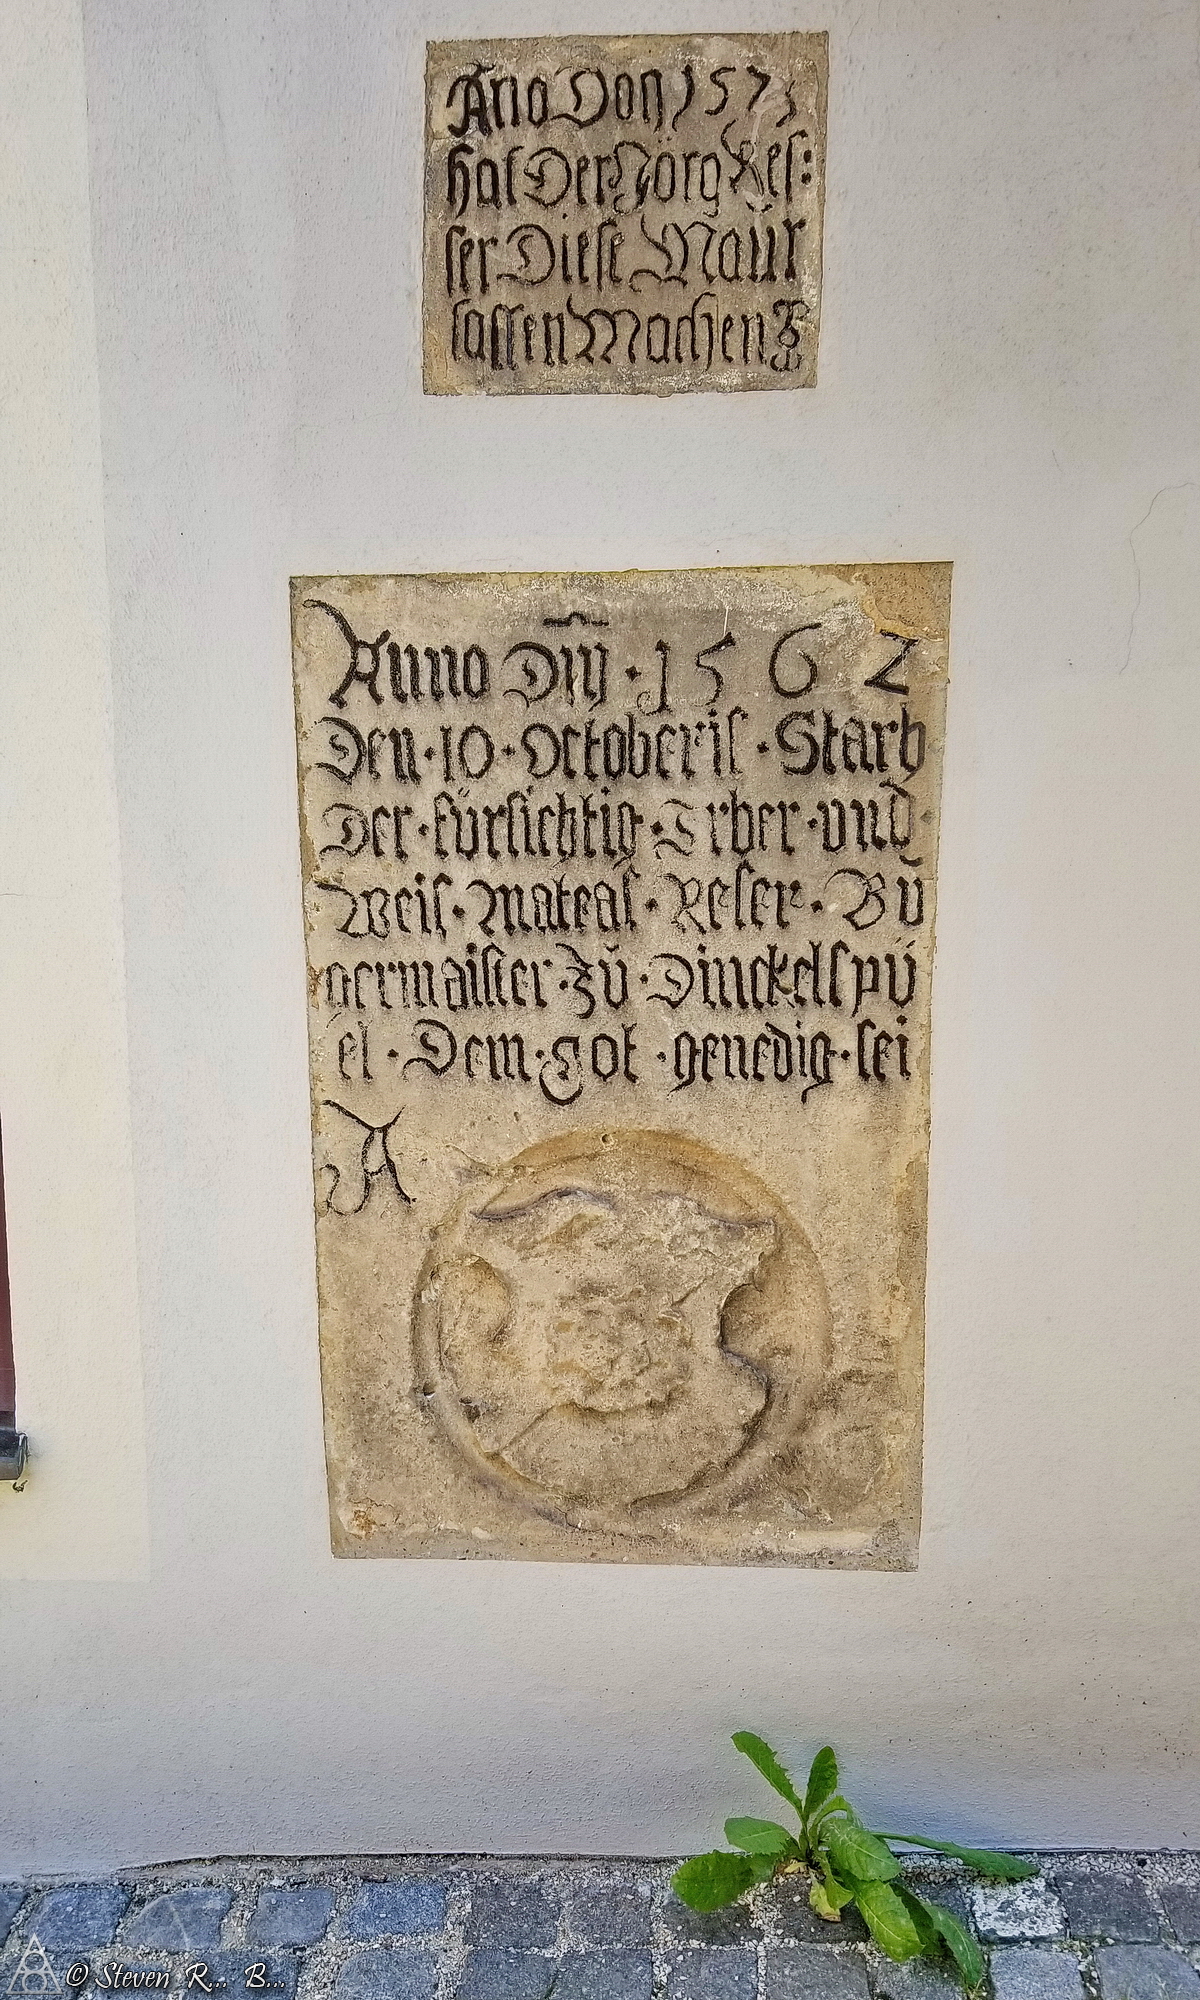 Año Don 1575
hat Der Jörg Res:
ser Diese Maür
lassen Machen
Anno Dm̄ · 1562
Den · 10 · Octoberis · Starb
Der · fürsichtig · Erber · und ·
Weis · Mateas · Reser · Bŭ
germaister · Zŭ · Dinckelspü
el · Dem · got · genedig · sei
A
© Steven R... B...